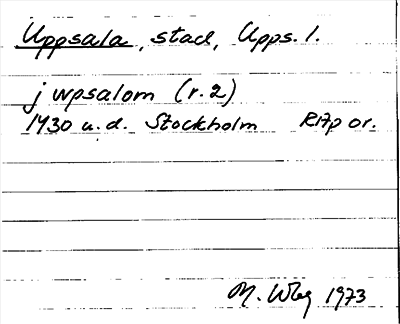 Uppsala, stad, Upps. l.
j wpsalom (r. 2)
1430 u.d. Stockholm RAp or.
M. Wbg 1973